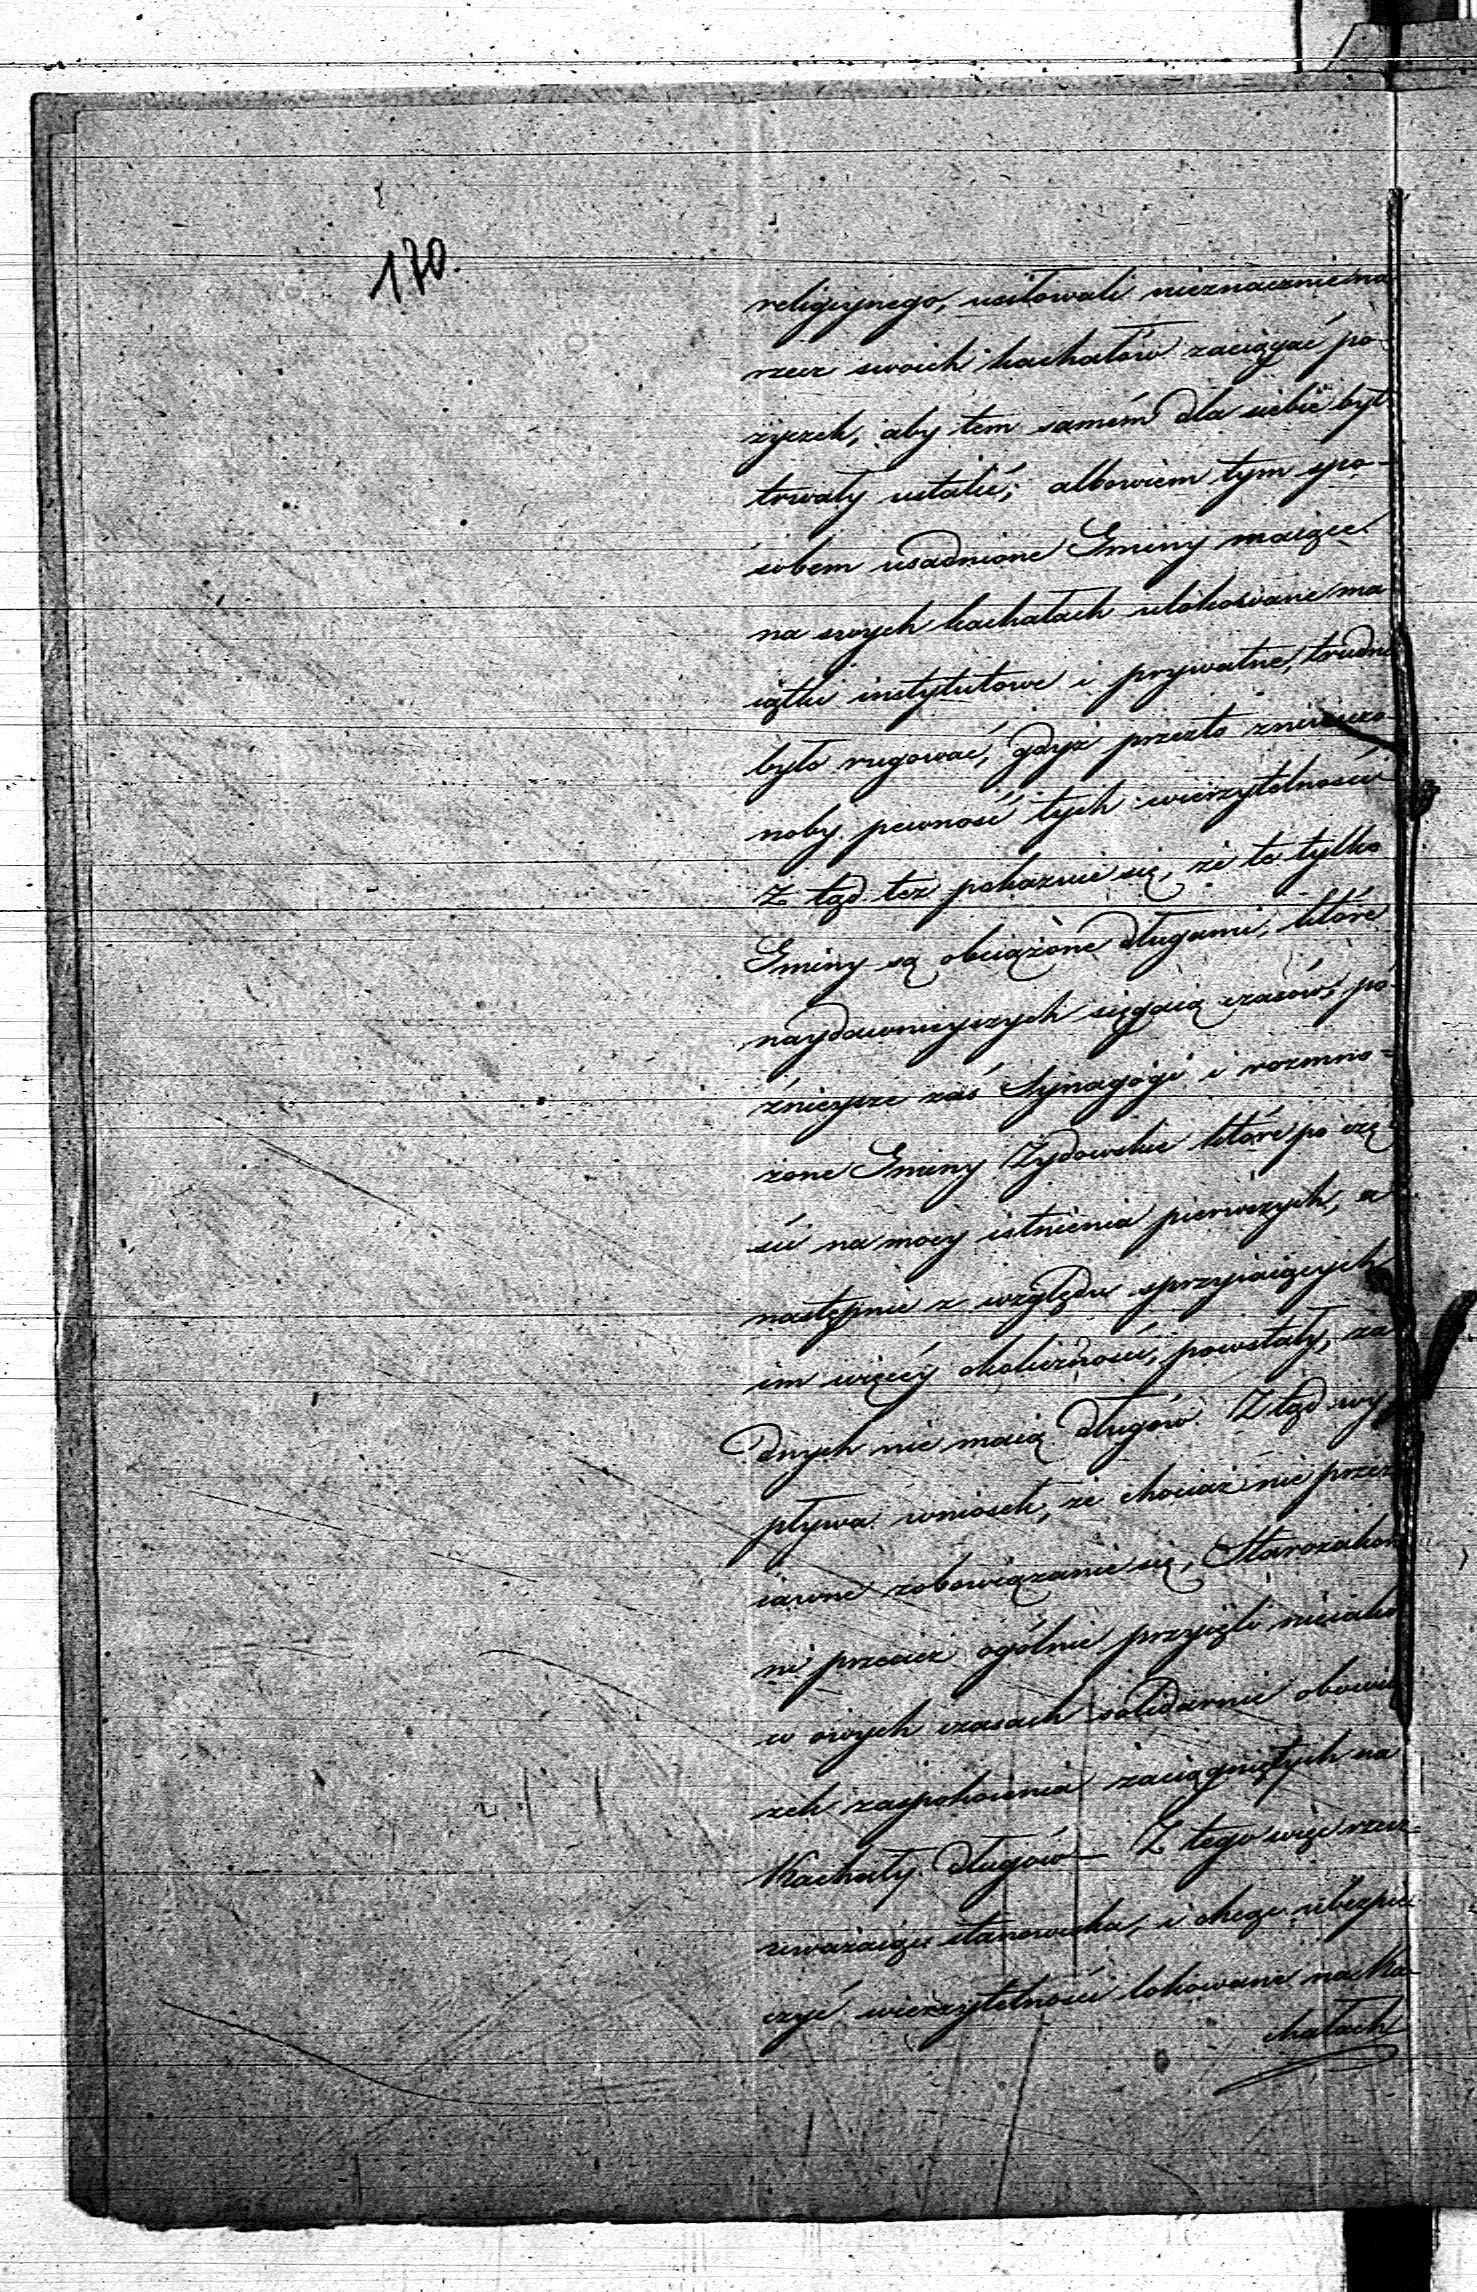 170.
religijnego, usiłowali nieznacznie na
rzecz swoich kachałów zaciągać po
życzek, aby tem samém dla siebie byt
trwały ustalić; albowiem tym spo-
sobem usadnione Gminy maiące
na swych kachałach ulokowane ma
iątki instytutowe i prywatne, trudno
było rugować, gdyż przezto zniweczo-
noby pewność tych wierzytelności
Z tąd też pokazuie się, że te tylko
Gminy są obciążone długami, które
naydawnieyszych sięgaią czasów, pó-
źnieysze zaś Synagogi i rozmno-
żone Gminy Żydowskie które po czę
ści na mocy istnienia pierwszych, a
następnie z względu sprzyiaiących
im więcéy okoliczności, powstały, ża
dnych nie maią długów. Ztąd wy
pływa wniosek, że chociaż nie przez
iawne zobowiązanie się, Starozakon
ni przecież ogólnie przyięli nieiako
w owych czasach solidarnie obowią
zek zaspokoienia zaciągniętych na
Kachały długów — Z tego więc rzecz
uważaiąc stanowiska, i chcąc ubezpie
czyć wierzytelności lokowane na Ka
chałach